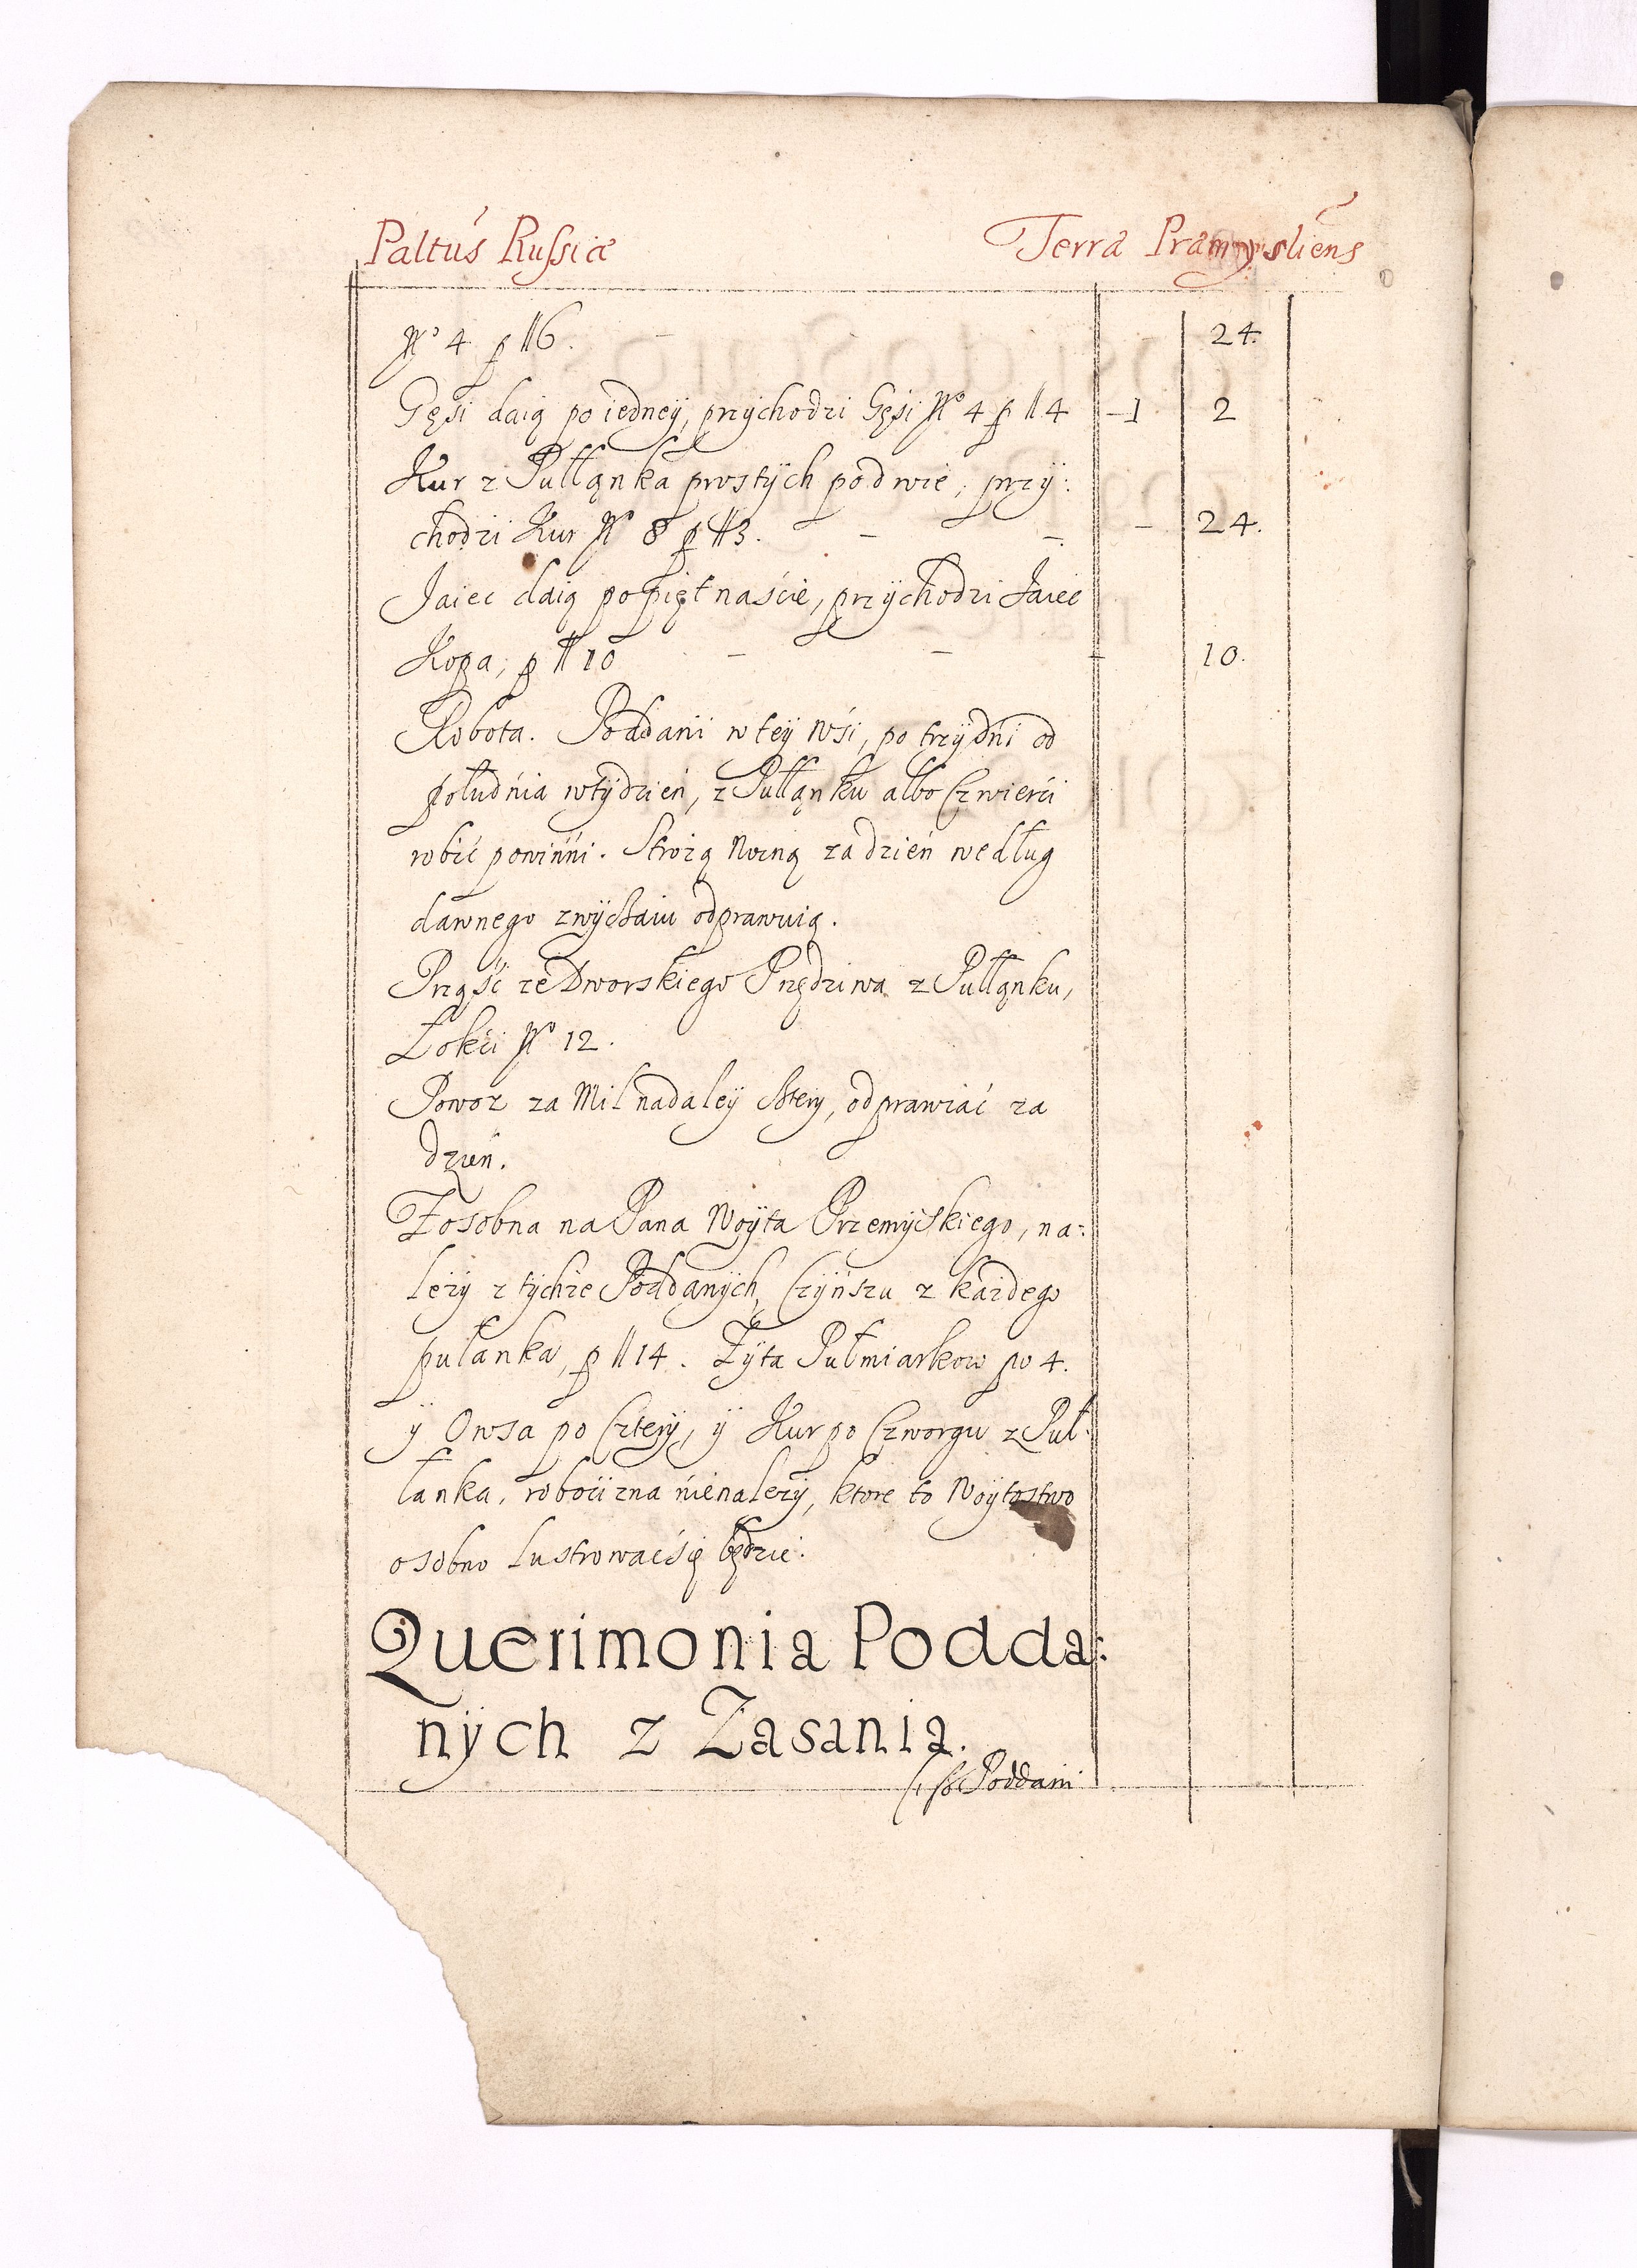 Paltus Russiæ Terra Præmysliens
No 4 p ll 6. – – 24.
Gęsi daią po iedney, przychodzi Gęsi No 4 p ll 4 – 1 2
Kur z Pułłąnka prostÿch po dwie, przÿ:
chodzi Kur No 8 p ll 3. – – – 24.
Jaiec daią po piętnaście, przÿchodzi Jaiec
Kopa, p ll 10 – – – 10.
Robota. Poddani w teÿ Wśi, po trzÿ dni od
południa w tÿdzień, z Pułłąnku albo Czwierći
robić powinńi. Stróżą Nocną za dzień według
dawnego zwÿczaiu odprawuią.
Prząść ze Dworskiego Przędziwa z Pułłąnku,
Łokći No 12.
Powoz za Mil nadaleÿ cztery, odprawiać za
dzień.
Zosobna na Pana Woÿta PrzemÿsKiego, na:
leżÿ z tÿchże Poddanÿch, Czÿńszu z każdego
pułanka, p ll 14. Żÿta Pułmiarkow po 4.
ÿ Owsa po Czterÿ, ÿ Kur po Czworgu z Puł:
łanka, robocizna nienależÿ, ktore to Woÿtostwo
osobno Lustrować śię będzie.
Querimonia Podda:
nÿch z Zasania.
Ciż Poddani